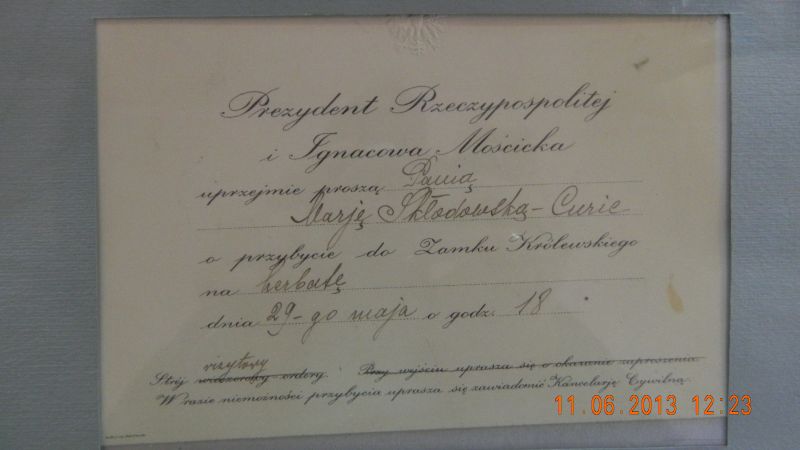 Prezydent Rzeczypospolitej
i Ignacowa Mościcka
uprzejmie proszą Panią
Marję Skłodowską-Curie
o przybycie do Zamku Królewskiego
na herbatę
dnia 29-go maja o godz. 18
wizytowy
Strój wieczorowy ordery. Przy wejściu uprasza się o okazanie zaproszenia.
W razie niemożności przybycia uprasza się zawiadomić Kancelarję Cywilną.
11.06.2013 12:23